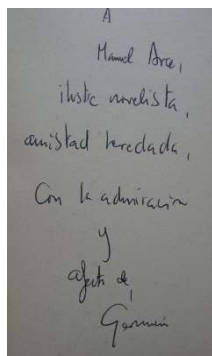 A
Manuel Arce,
ilustre novelista,
amistad heredada,
Con la admiración
y
afecto de,
Germán